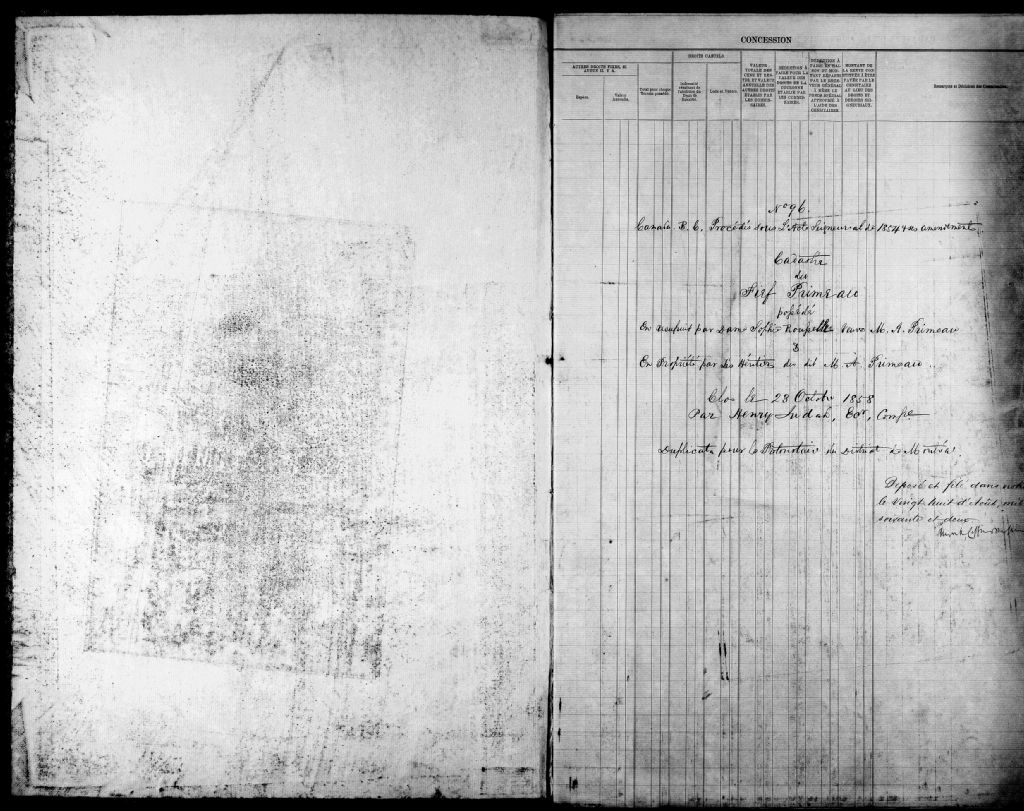 CONCESSION
AUTRES DROITS FIXES, SI
AUCUN IL Y A.
Espèce.
Valeur
Annuelle.
Total pour chaque
Terrain possédé.
DROITS CASUELS
Indemnité
résultant de
l'abolition du
Droit de
Banalité.
Lods et Ventes.
VALEUR
TOTALE DES
CENS ET REN-
TES, ET VALEUR
ANNUELLE DES
AUTRES DROITS
ÉTABLIS PAR
LES COMMIS-
SAIRES.
DÉDUCTION À
FAIRE POUR LA
VALEUR DES
DROITS DE LA
COURONNE
ÉTABLIE PAR
LES COMMIS-
SAIRES.
DÉDUCTION À
FAIRE EN RAI-
SON DU MON-
TANT RÉPARTI
PAR LE RECE-
VEUR GÉNÉRAL
À MÊME LE
FONDS SPÉCIAL
APPROPRIÉ À
L'AIDE DES
CENSITAIRES.
MONTANT DE
LA RENTE CON-
STITUÉE À ÊTRE
PAYÉE PAR LE
CENSITAIRE
AU LIEU DES
DROITS ET
DEVOIRS SEI-
GNEURIAUX.
Remarques et Décisions des Commissaires.
No 96.
Canada B. C. Procédés sous L'Acte Seigneurial de 1854 & ses amendements
Cadastre
du
Fief Primeau
possédé
En usufruit par Dame Sophie Roupelle Veuve M. A. Primeau
&
En Propriété par les Héritiers du dit M. A. Primeau.
Clos le 23 Octobre 1858
Par Henry Judah, Ecr, Compe
Duplicata pour le Protonotaire du District de Montréal
Déposé et filé dans
le vingt huit d'Août, mil
soixante et deux